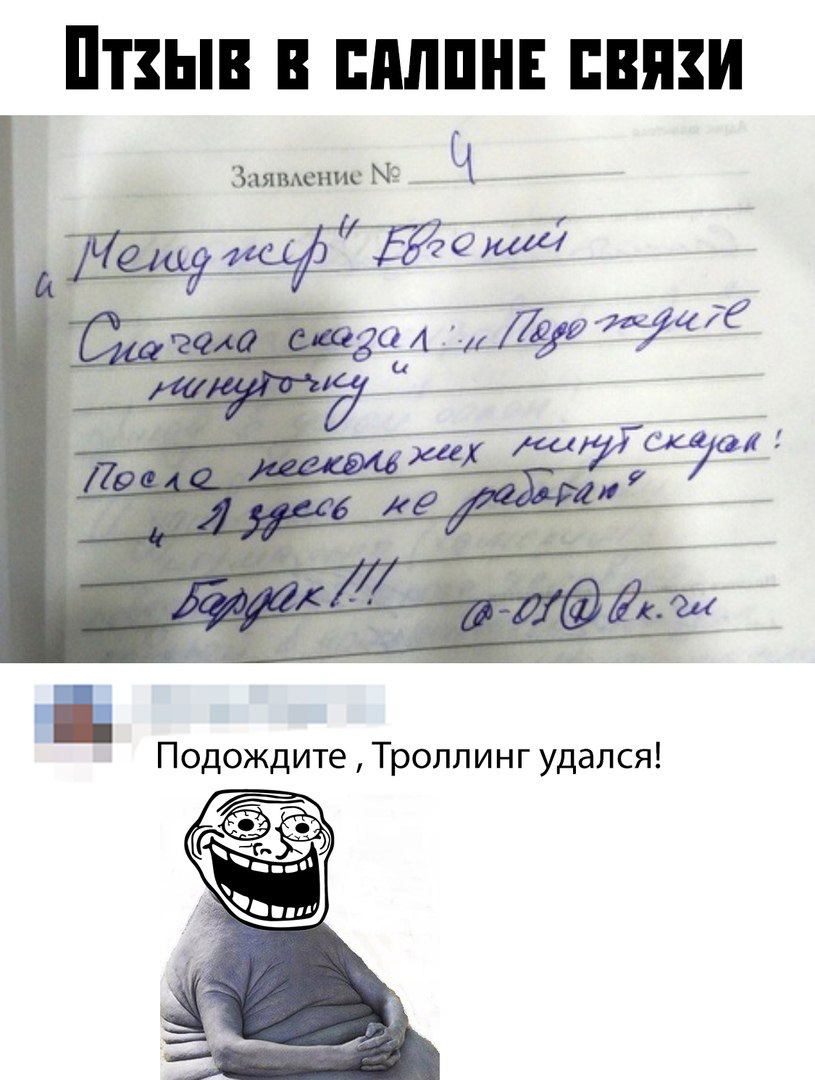 Отзыв в салоне связи
Заявление № 4
„Менеджер“ Евгений
Сначала сказал: „Подождите
минуточку“
После нескольких минут сказал:
„Я здесь не работаю“
Бардак!!!
Подождите , Троллинг удался!